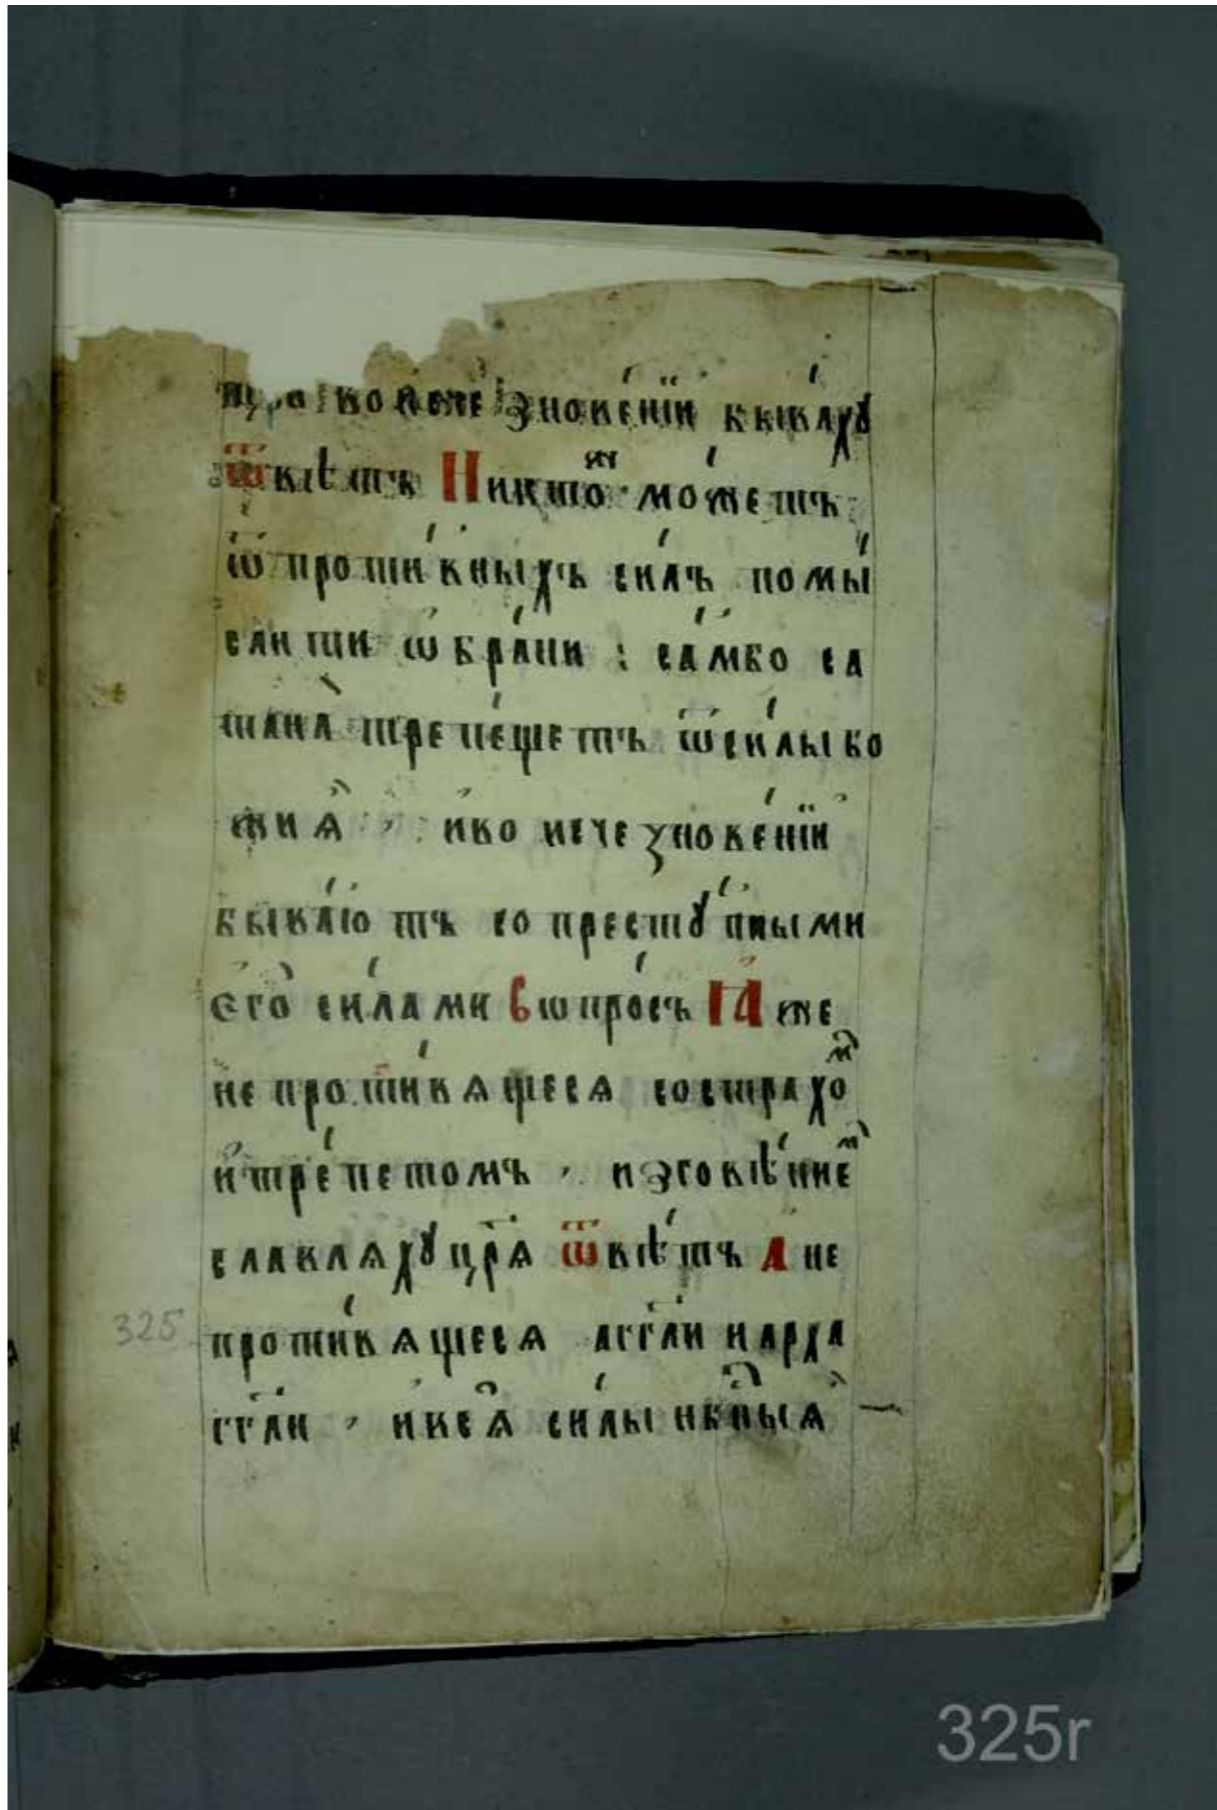 знове́нїи быва́хꙋ
ѿвѣтъ Никто́ж мо́жетъ
ѿ проти́вныхъ си́лъ помы́
слити ѡ бра́ни : са́мбо са
тана̀ трепе́щетъ ѿ си́лы бо
жиѧ̀ , и҆ко исчезнове́нїи
быва́ютъ со престꙋ́пными
є҆го̀ си́лами Вопро́съ Ꙗ҆́же
не проти́вѧщесѧ состра хо̑м
и҆ тре́петомъ , и зговѣ́ниемⷨ
славлѧхꙋ цр҃ѧ ѿвѣ́тъ А҆ не
проти́вѧщесѧ а҆гг҃ли и арха
гг҃ли , и҆ всѧ̀ си́лы нбⷭ҇ныѧ
325
325r